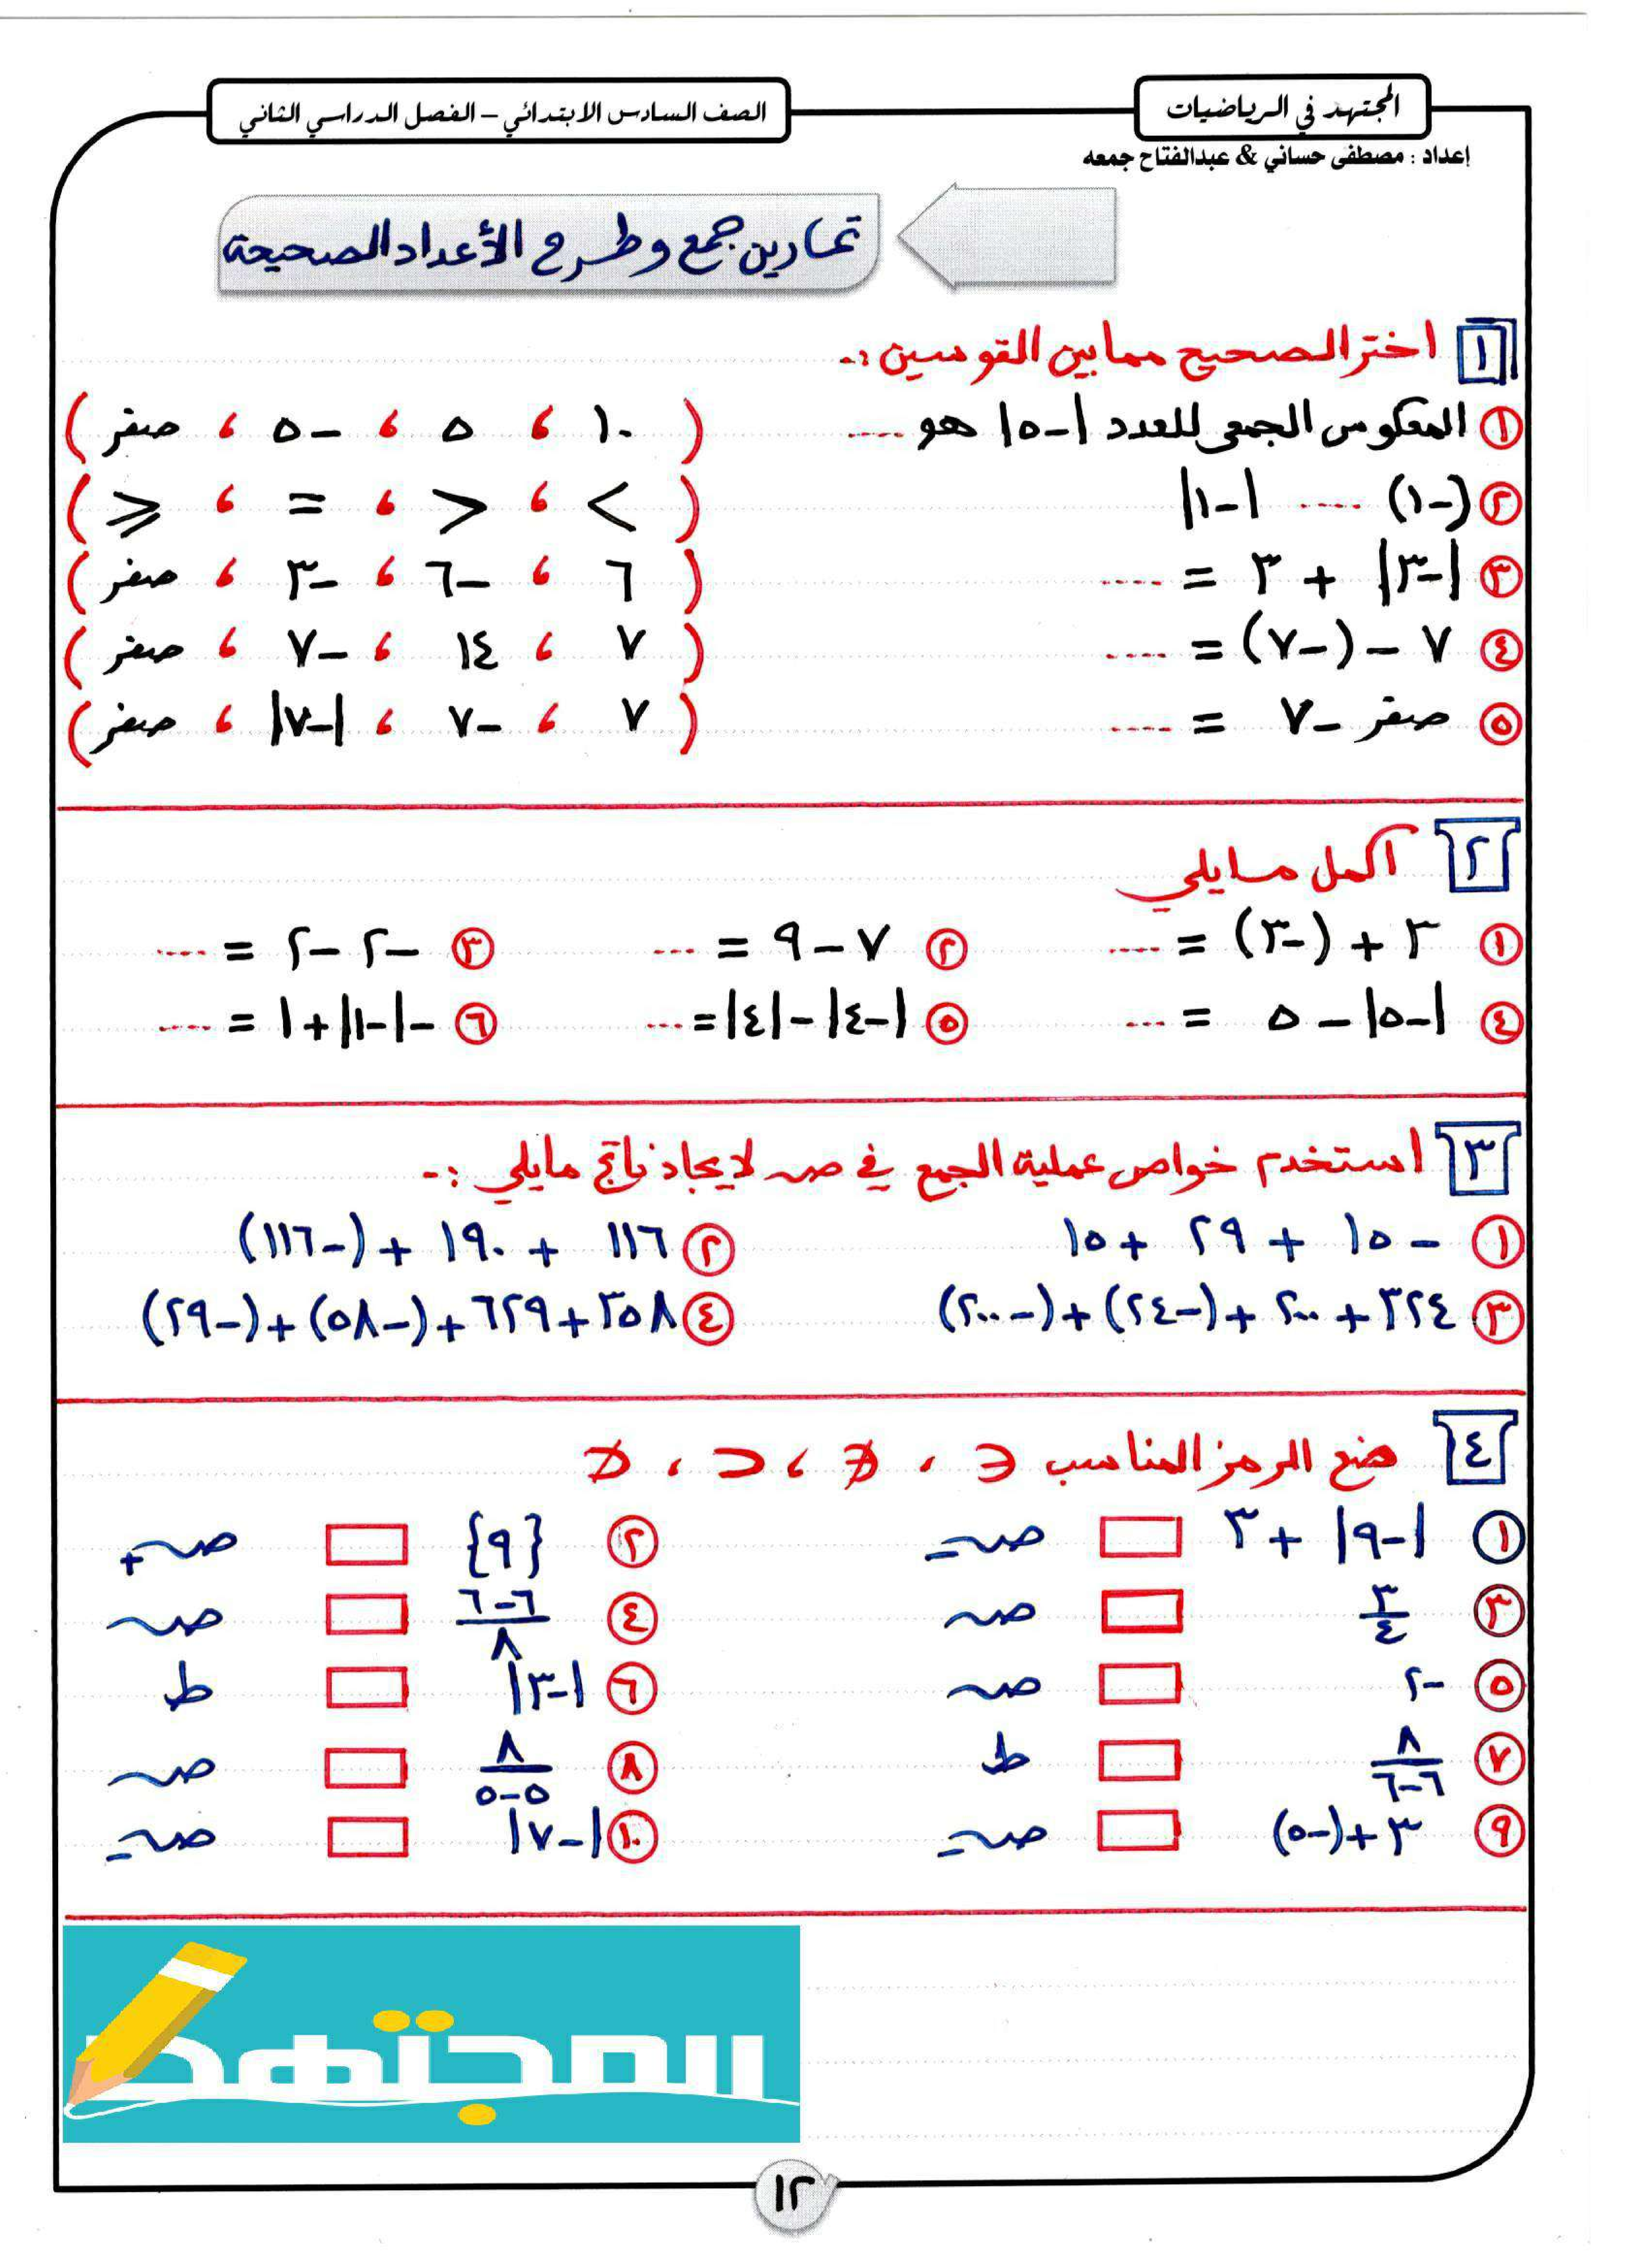 المجتهد في الرياضيات
الصف السادس الابتدائي – الفصل الدراسي الثاني
إعداد : مصطفى حساني & عبدالفتاح جمعه
تمارين جمع وطرح الأعداد الصحيحة
١ اختر الصحيح مما بين القوسين :-
١ المعكوس الجمعى للعدد |-٥| هو .... ( ١٠ ، ٥ ، -٥ ، صفر )
٢ (-١) .... |-١| ( > ، < ، = ، ⩾ )
٣ |-٣| + ٣ = .... ( ٦ ، -٦ ، -٣ ، صفر )
٤ ٧ - (-٧) = .... ( ٧ ، ١٤ ، -٧ ، صفر )
٥ صفر - ٧ = .... ( ٧ ، -٧ ، |-٧| ، صفر )
٢ أكمل مايلي
١ ٣ + (-٣) = .... ٢ ٧ - ٩ = .... ٣ -٢ - ٢ = ....
٤ |-٥| - ٥ = .... ٥ |-٤| - |٤| = .... ٦ -|-١| + ١ = ....
٣ استخدم خواص عملية الجمع في صـ لايجاد ناتج مايلي :-
١ -١٥ + ٢٩ + ١٥ ٢ ١١٦ + ١٩٠ + (-١١٦)
٣ ٣٢٤ + ٢٠٠ + (-٢٤) + (-٢٠٠) ٤ ٣٥٨ + ٦٢٩ + (-٥٨) + (-٢٩)
٤ ضع الرمز المناسب ∈ ، ∉ ، ⊂ ، ⊄
١ |-٩| + ٣ □ صـ- ٢ {٩} □ صـ+
٣ ٣/٤ □ صـ ٤ (٦-٦)/٨ □ صـ
٥ -٢ □ صـ ٦ |-٣| □ ط
٧ ٨/(٦-٦) □ ط ٨ ٨/(٥-٥) □ صـ
٩ ٣ + (-٥) □ صـ- ١٠ |-٧| □ صـ-
المجتهد
١٢